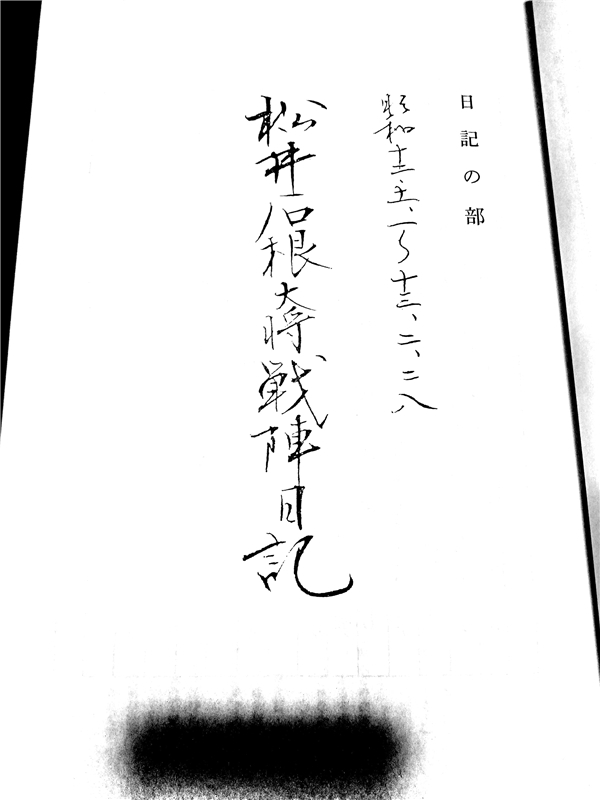 日記の部
昭和十二、五、一〜十三、二、二八
松井石根大将戦陣日記